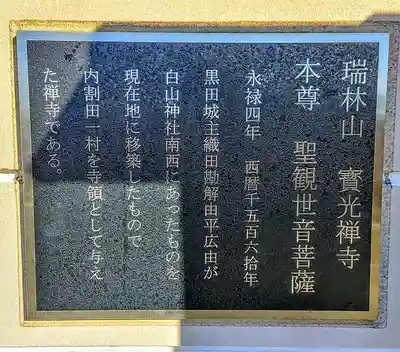 瑞林山　寳光禅寺
本尊　聖観世音菩薩
永禄四年　西暦千五百六拾年
黒田城主織田勘解由平広由が
白山神社南西にあったものを
現在地に移築したもので
内割田一村を寺領として与え
た禅寺である。